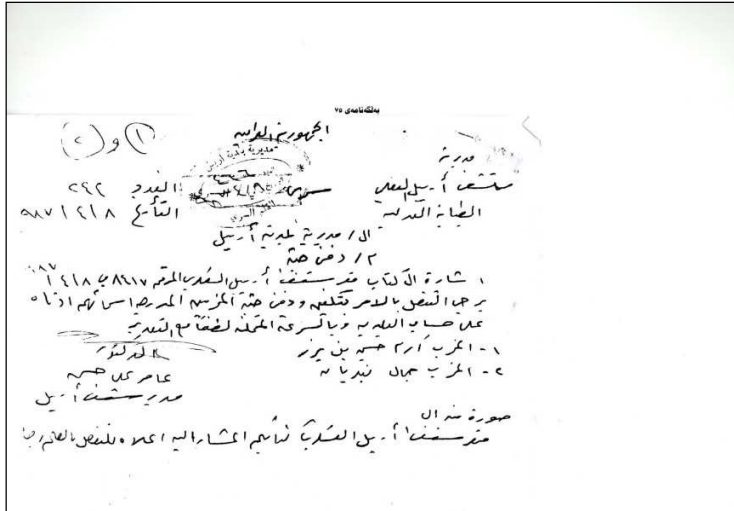 بەڵگەنامەی ٧٥
الجمهورية العراقية
١ و ٢
مديرية
مستشفى أربيل التعليمي
سري
العدد ٢٤٢
الطبابة العدلية
التأريخ ٩٨٧/٤/٨
مديرية بلدية أربيل
ال/ مديرية بلدية أربيل
م/ دفن جثة
اشارة الى كتاب مستشفى أربيل العسكري المرقم ٨٤١٧ في ٤/٨
يرجى التفضل بالأمر بتكفين ودفن جثة المخربين المدرجة اسمائهم ادناه
على حساب البلدية وبالسرعة الممكنة لطفاً مع التقدير
١- المخرب آرام حسين
٢- المخرب جمال
الدكتور
عامر علي حسين
مدير مستشفى أربيل
صورة منه الى
مستشفى أربيل العسكري كتابكم المشار اليه اعلاه للتفضل بالعلم رجاءً